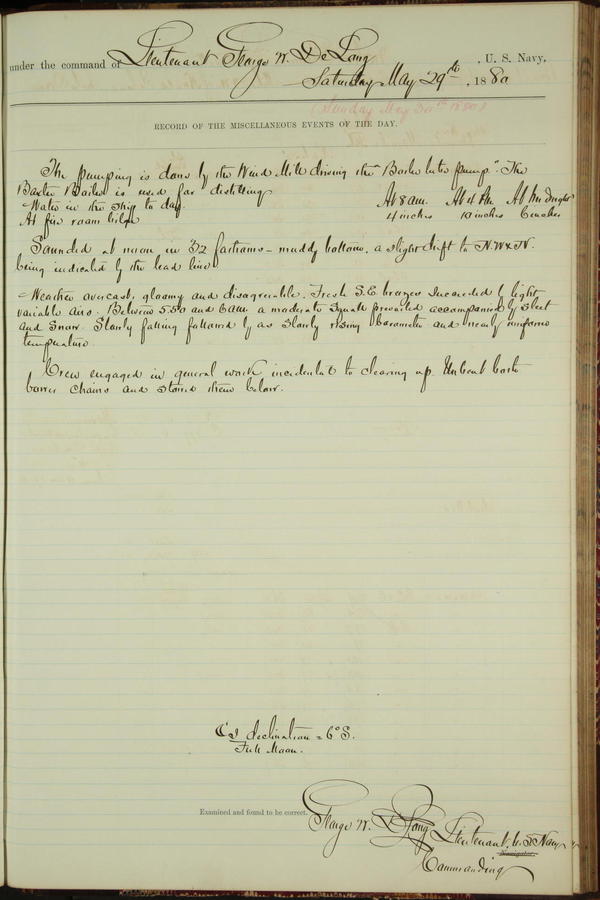 under the command of Lieutenant George W. De Long , U. S. Navy,
Saturday May 29th , 1880
(Sunday May 30th 1880)
RECORD OF THE MISCELLANEOUS EVENTS OF THE DAY.
The pumping is done by the Wind Mill driving the "Baxter pump." The
Baxter Boiler is used for distilling
Water in the ship to day. At 8 am. At 4 Pm. At Midnight
At fire room bilge 4 inches 10 inches 6 inches
Sounded at noon in 32 fathoms - muddy bottom. a slight drift to N.W x N.
being indicated by the lead line
Weather overcast, gloomy and disagreeable. Fresh S.E. breezes succeeded by light
variable airs. Between 5.30 and 6 am a moderate squall prevailed accompanied by sleet
and snow. Slowly falling followed by as slowly rising barometer and nearly uniform
temperature.
Crew engaged in general work incidental to clearing up. Unbent both
bower chains and stowed them below.
☾'s declination = 6° S.
Full Moon.
Examined and found to be correct.
George W. De Long Lieutenant U. S Navy
Navigator.
Commanding